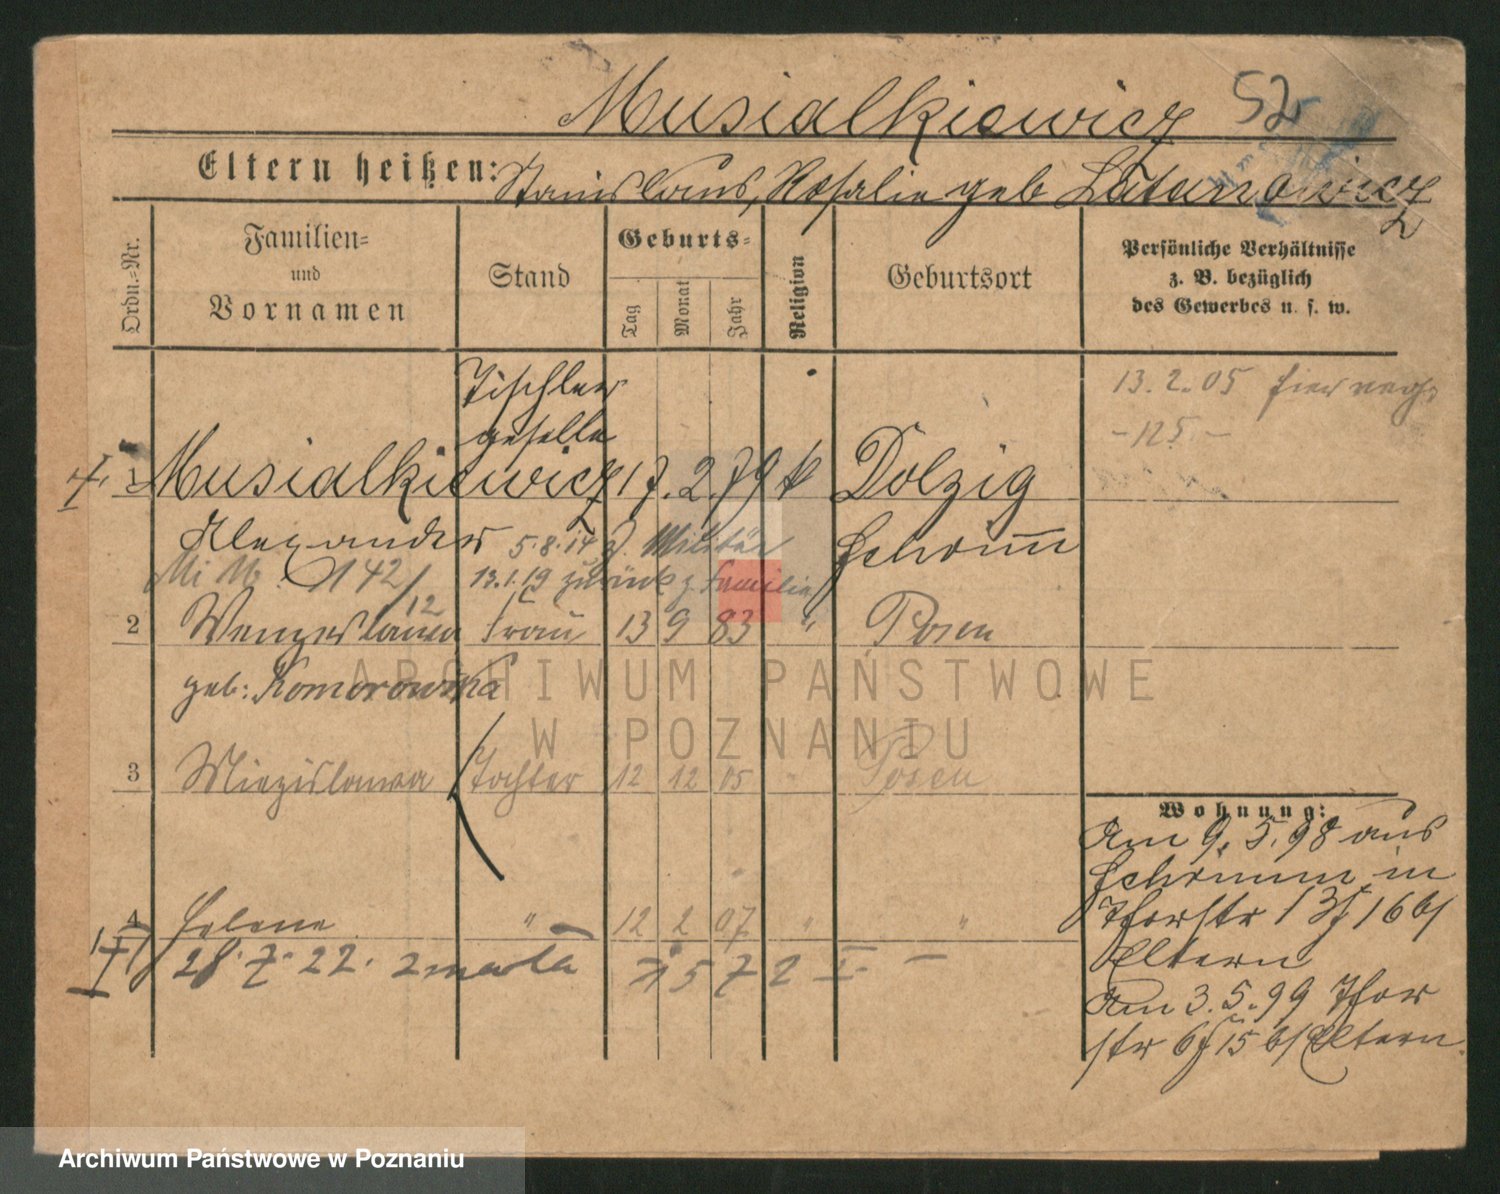 Musialkiewicz 52
Eltern heißen: Stanislaus, Rosalie geb Latanowicz
Ordn.=Nr.
Familien=
und
Vornamen
Stand
Geburts=
Tag
Monat
Jahr
Religion
Geburtsort
Persönliche Verhältnisse
z. B. bezüglich
des Gewerbes u. s. w.
13. 2. 05
- 125 -
Tischler
geselle
1 Musialkiewicz 17. 2. 79 k Dolzig
Alexander 5. 8. 14 z. Militär Schrimm
142/12 13. 1. 19 zurück z. Familie
2 Wenzeslawa Frau 13 9 83 " Posen
geb: Komorowska
3 Miezislawa Tochter 12 12 05 " Posen
4 Helene " 12 2 07 " "
28. 7. 22. zmarła
Wohnung:
Am 9. 5. 98 aus
Schrimm in
Thorstr 13 I 16 b/
Eltern
Am 3. 5. 99 Thor
str 6 I 15 b/ Eltern.
ARCHIWUM PAŃSTWOWE
W POZNANIU
Archiwum Państwowe w Poznaniu